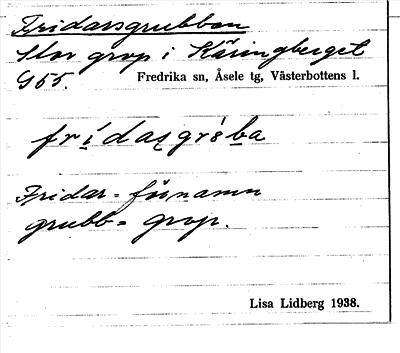 Fridarsgrubban
Stor grop i Käringberget
G 55.
Fredrika sn, Åsele tg, Västerbottens l.
Fridar = förnamn
grubb = grop.
Lisa Lidberg 1938.